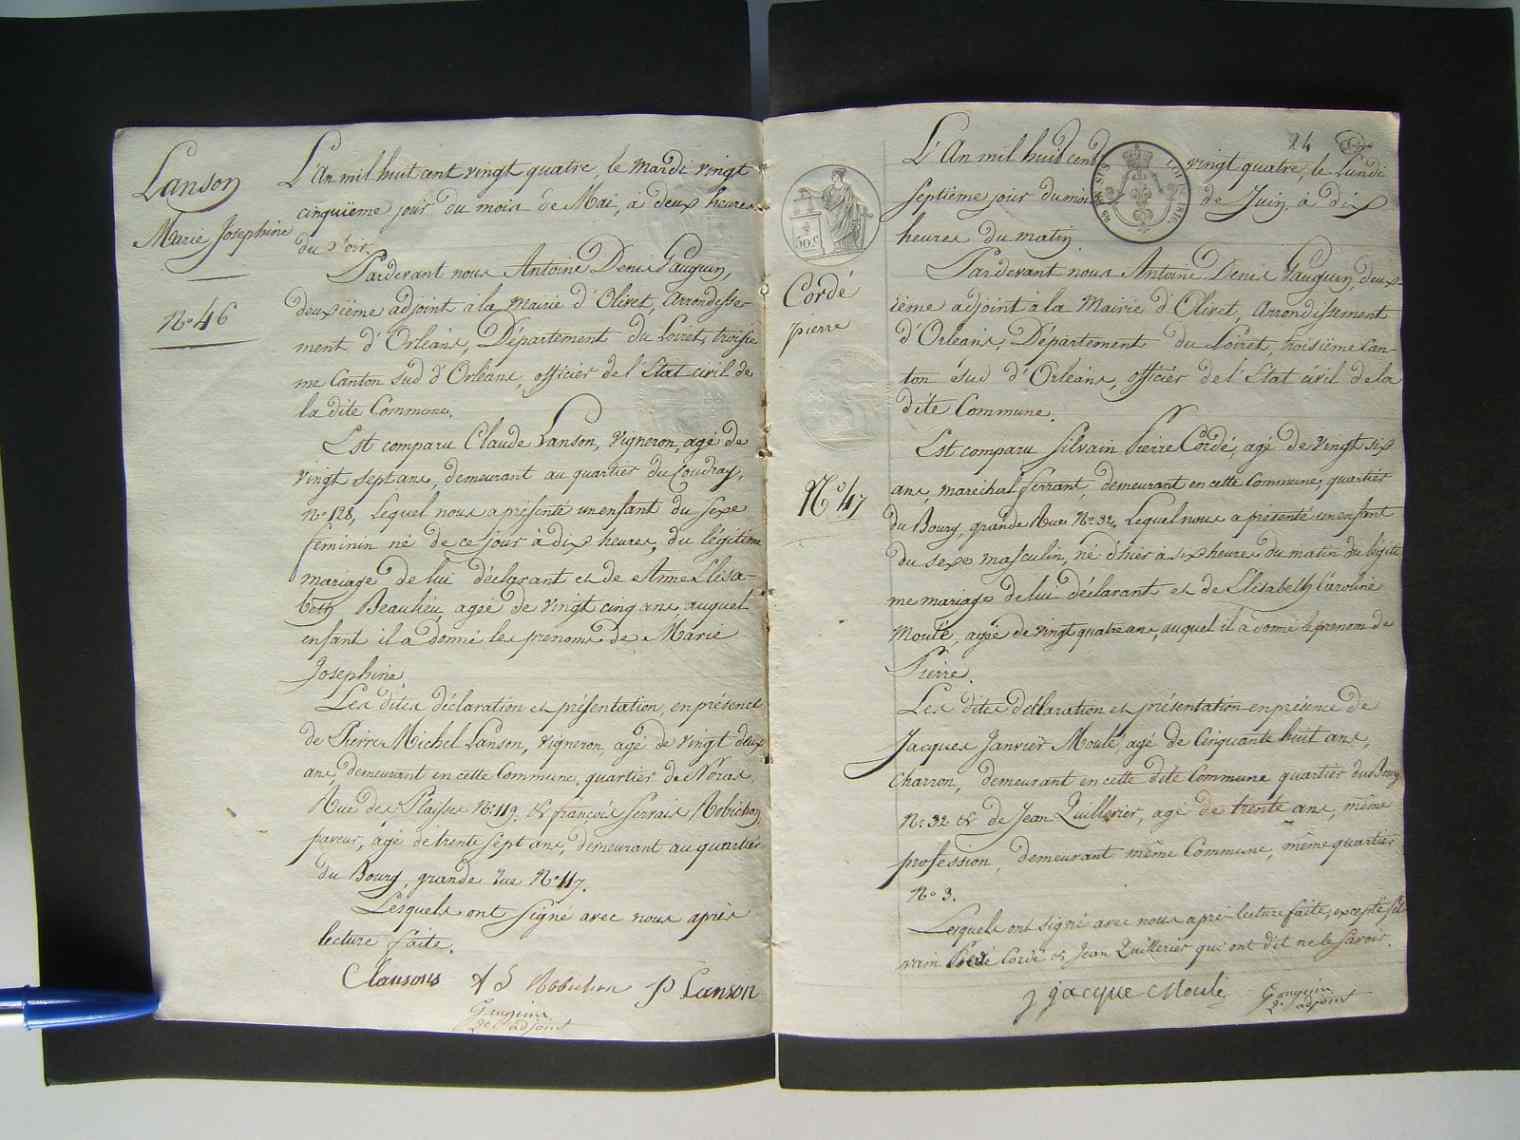 Lanson
Marie Josephine
No 46
L'An mil huit cent vingt quatre, le Mardi vingt
cinquième jour du mois de Mai, à deux heures
du soir.
Pardevant nous Antoine Denis Gauguin,
deuxième adjoint à la Mairie d'Olivet, arrondisse-
ment d'Orléans, Département du Loiret, troisie
me Canton sud d'Orléans, officier de l'Etat civil de
la dite Commune.
Est comparu Claude Lanson, Vigneron, agé de
vingt sept ans, demeurant au quartier du Coudray,
no 128, Lequel nous a présenté un enfant du sexe
féminin né de ce jour à dix heures, du légitime
mariage de lui déclarant et de Anne Elisa-
beth Beaulieu, agée de vingt cinq ans auquel
enfant il a donné les prenoms de Marie
Josephine.
Les dites déclaration et présentation, en présence
de Pierre Michel Lanson, vigneron, agé de vingt deux
ans, demeurant en cette Commune, quartier de
Rue des No 119. & françois Servais Robichon,
paveur, âgé de trente sept ans, demeurant au quartier
du Bourg, grande rue No 117.
Lesquels ont signé avec nous après
lecture faite.
Robichon P Lanson
Gauguin
2e adjoint
24
Cordé
pierre
No 47
L'An mil huit cent vingt quatre, le Lundi
septième jour du mois de Juin, à dix
heures du matin.
Pardevant nous Antoine Denis Gauguin, deux-
ième adjoint à la Mairie d'Olivet, Arrondissement
d'Orléans, Département du Loiret, troisième Can-
ton sud d'Orléans, officier de l'Etat civil de la
dite Commune.
Est comparu Silvain Pierre Cordé, agé de vingt six
ans, maréchal ferrant, demeurant en cette Commune, quartier
du Bourg, grande Rue No 32, Lequel nous a présenté un enfant
du sexe masculin, né d'hier à six heures du matin du légiti
me mariage de lui déclarant et de Elisabeth Caroline
Moulé, agée de vingt quatre ans, auquel il a donné le prenom de
Pierre.
Les dites déclaration et présentation en présence de
Jacques Janvier Moulé, agé de Cinquante huit ans,
Charron, demeurant en cette dite Commune quartier du Bourg
No 32 & de Jean Quillerier, agé de trente ans, même
profession, demeurant même Commune, même quartier
No 3.
Lesquels ont signé avec nous après lecture faite, excepté Sil
vain Pierre Cordé et Jean Quillerier qui ont dit ne le savoir.
J jacque Moulé Gauguin
2e adjoint